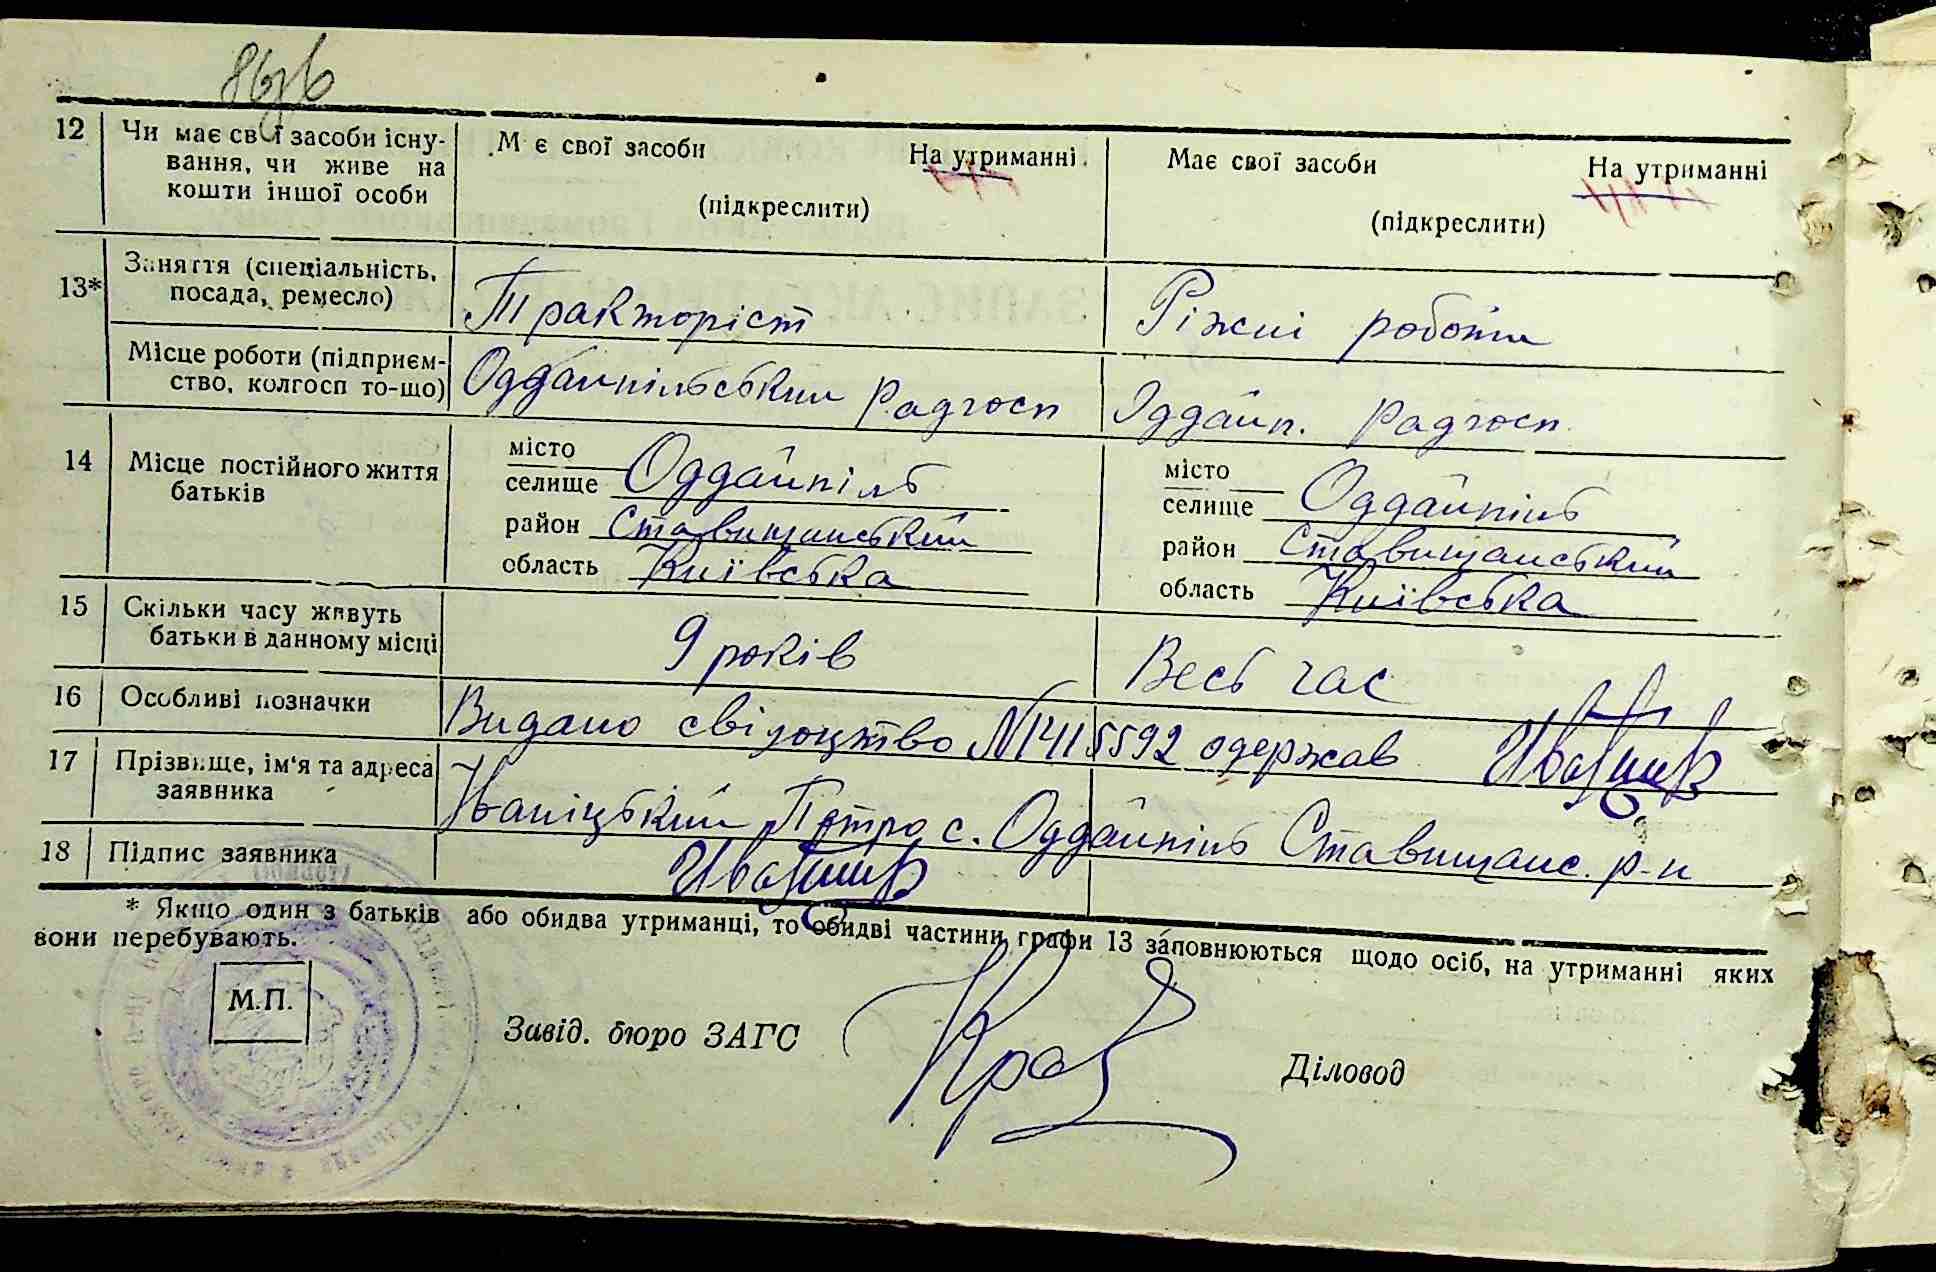 12 Чи має св ї засоби існу-
вання, чи живе на
кошти іншої особи
М є свої засоби На утриманні
(підкреслити)
Має свої засоби На утриманні
(підкреслити)
13* Заняття (спеціальність,
посада, ремесло)
Тракторіст
Ріжні роботи
Місце роботи (підприєм-
ство, колгосп то-що)
Оддайпільський радгосп
Оддайп. радгосп.
14 Місце постійного життя
батьків
місто
селище Оддайпіль
район Ставищанський
область Київська
місто
селище Оддайпіль
район Ставищанський
область Київська
15 Скільки часу живуть
батьки в данному місці
9 років
Весь час
16 Особливі позначки
Видано свідоцтво №1415592 одержав
17 Прізвище, ім'я та адреса
заявника
Іваніцький Петро с. Оддайпіль Ставищанс. р-н
18 Підпис заявника
* Якщо один з батьків або обидва утриманці, то обидві частини графи 13 заповнюються щодо осіб, на утриманні яких
вони перебувають.
М.П.
Завід. бюро ЗАГС
Діловод